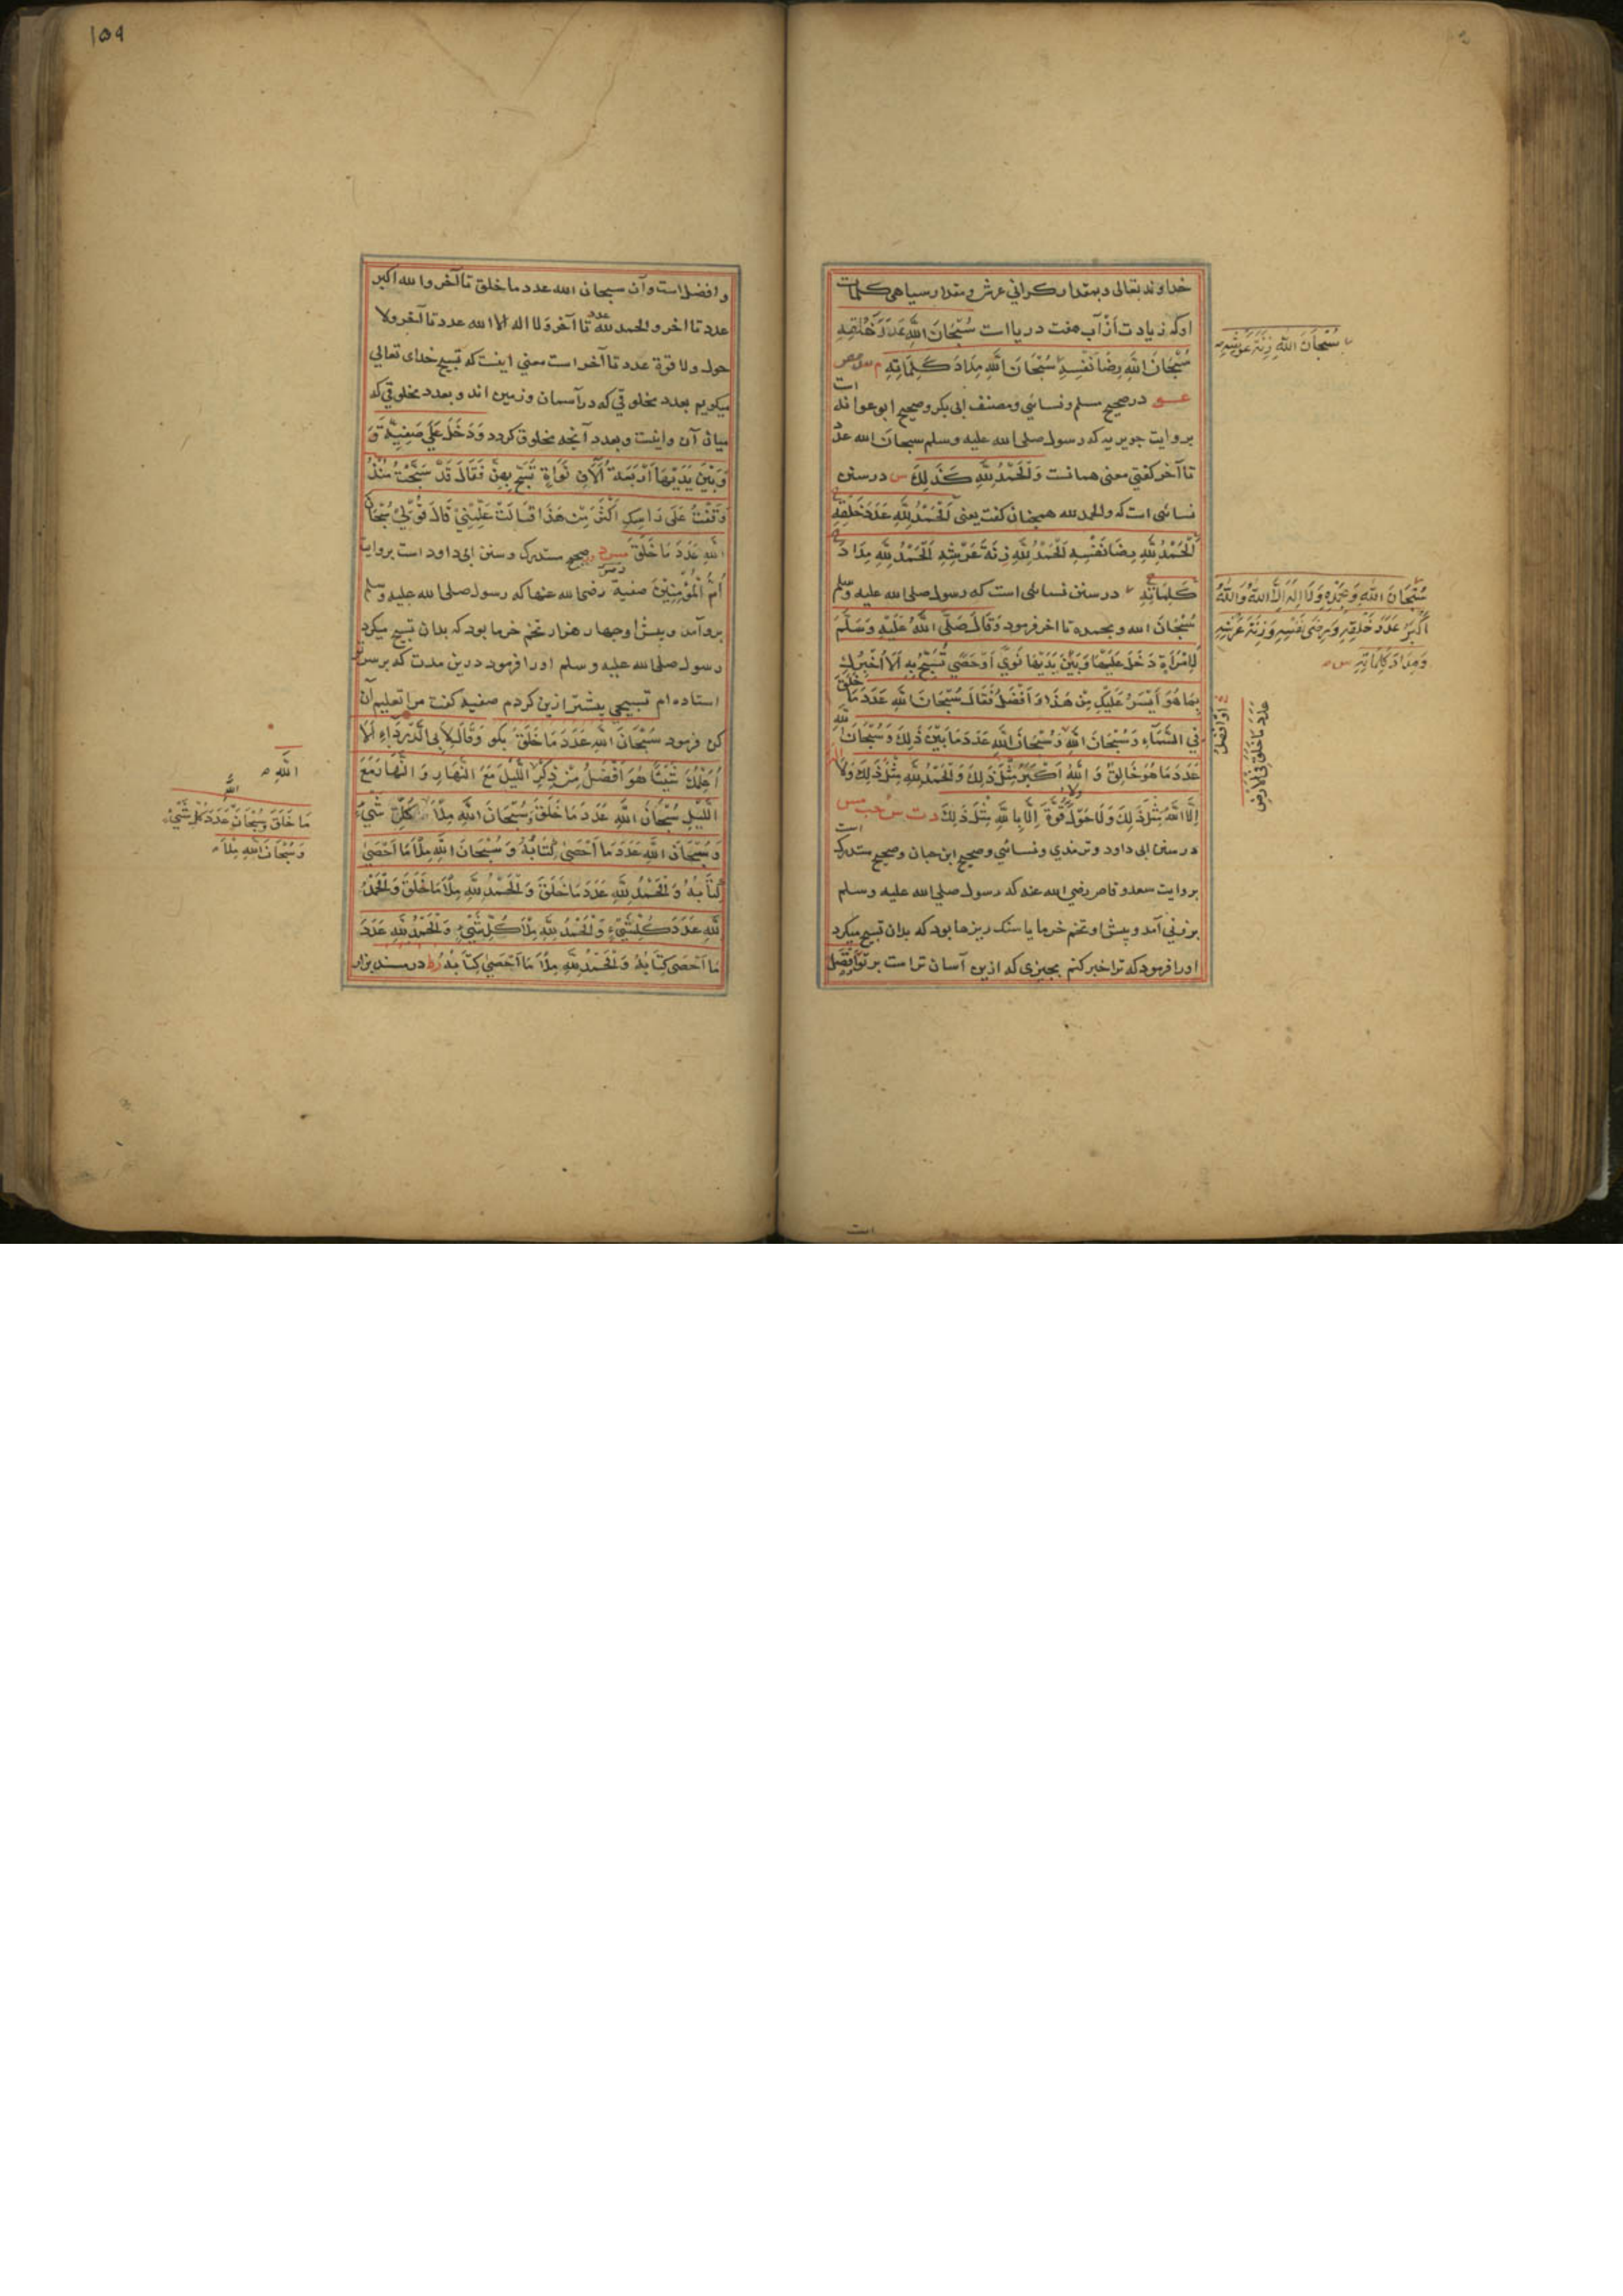 خداوند تعالی و بمقدار کرانی عرش و مقدار سیاهی کلمات
او که زیادت از آب هفت دریا است سُبْحَانَ اللّٰهِ عَدَدَ خَلْقِهِ
سُبْحَانَ اللّٰهِ رِضَا نَفْسِهِ سُبْحَانَ اللّٰهِ مِدَادَ كَلِمَاتِهِ م س مص
عو در صحیح مسلم و نسائی و مصنف ابی بکر و صحیح ابو عوانه است
بروایت جویریه که رسول صلی الله علیه وسلم سبحان الله عدد
تا آخر کفتی معنی همانست وَالْحَمْدُ لِلّٰهِ كَذَلِكَ س در سنن
نسائی است که والحمد لله همچنان کفت یعنی اَلْحَمْدُ لِلّٰهِ عَدَدَ خَلْقِهِ
اَلْحَمْدُ لِلّٰهِ رِضَا نَفْسِهِ اَلْحَمْدُ لِلّٰهِ زِنَةَ عَرْشِهِ اَلْحَمْدُ لِلّٰهِ مِدَادَ
كَلِمَاتِهِ در سنن نسائی است که رسول صلی الله علیه وسلم
سُبْحَانَ الله وبحمده تا اخر فرمود وَقَالَ صَلَّى اللّٰهُ عَلَيْهِ وَسَلَّمَ
لِامْرَأَةٍ دَخَلَ عَلَيْهَا وَبَيْنَ يَدَيْهَا نَوًى اَوْ حَصًى تُسَبِّحُ بِهِ اَلَا اُخْبِرُكِ
بِمَا هُوَ اَيْسَرُ عَلَيْكِ مِنْ هَذَا وَاَفْضَلُ فَقَالَ سُبْحَانَ اللّٰهِ عَدَدَ مَا خَلَقَ
فِي السَّمَاءِ وَسُبْحَانَ اللّٰهِ وَسُبْحَانَ اللّٰهِ عَدَدَ مَا بَيْنَ ذَلِكَ وَسُبْحَانَ اللّٰهِ
عَدَدَ مَا هُوَ خَالِقٌ وَاللّٰهُ اَكْبَرُ مِثْلَ ذَلِكَ وَالْحَمْدُ لِلّٰهِ مِثْلَ ذَلِكَ وَلَا اله
اِلَّا اللّٰهُ مِثْلَ ذَلِكَ وَلَا حَوْلَ ولا قُوَّةَ اِلَّا بِاللّٰهِ مِثْلَ ذَلِكَ د ت س حب مس
در سنن ابی داود و ترمذی و نسائی و صحیح ابن حبان و صحیح مستدرک است
بروایت سعد وقاص رضی الله عنه که رسول صلی الله علیه وسلم
بر زنی آمد و پیش او تخم خرما یا سنک ریزها بود که بدان تسبیح میکرد
او را فرمود که ترا خبر کنم بچیزی که ازین آسان تر است بر تو وافضل
سُبْحَانَ اللّٰهِ زِنَةَ عَرْشِهِ
سُبْحَانَ اللّٰهِ وَبِحَمْدِهِ وَلَا اِلٰهَ اِلَّا اللّٰهُ وَاللّٰهُ
اَكْبَرُ عَدَدَ خَلْقِهِ وَرِضَى نَفْسِهِ وَزِنَةَ عَرْشِهِ
وَمِدَادَ كَلِمَاتِهِ س
اَوْ اَفْضَلُ
عَدَدَ مَا خَلَقَ فِي الْاَرْضِ
۱۵۹
و افضل است و آن سبحان الله عدد ما خلق تا آخر و الله اکبر
عدد تا اخر و الحمد لله عدد تا آخر وَلا اله الا الله عدد تا آخر ولا
حول ولا قوة عدد تا آخر است معنی اینست که تسبیح خدای تعالی
میکویم بعدد مخلوقی که در آسمان و زمین اند و بعدد مخلوقی که
میان آن و اینست و بعدد آنچه مخلوق کردد وَدَخَلَ عَلَى صَفِيَّةَ وَ
وَبَيْنَ يَدَيْهَا اَرْبَعَةُ اٰلَافِ نَوَاةٍ تُسَبِّحُ بِهِنَّ فَقَالَ قَدْ سَبَّحْتُ مُنْذُ
وَقَفْتُ عَلَى رَاْسِكِ اَكْثَرَ مِنْ هَذَا قَالَتْ عَلِّمْنِيْ قَالَ قُوْلِيْ سُبْحَانَ
اللّٰهِ عَدَدَ مَا خَلَقَ مس د در صحیح مستدرک و سنن ابی داود است بروایت
اُمُّ الْمُؤْمِنِيْنَ صفیه رضی الله عنها که رسول صلی الله علیه وسلم
برو آمد و پیش او چهار هزار تخم خرما بود که بدان تسبیح میکرد
رسول صلی الله علیه وسلم او را فرمود درین مدت که بر سر تو
استاده ام تسبیحی بیشتر ازین کردم صفیه کفت مرا تعلیم آن
کن فرمود سُبْحَانَ اللّٰهِ عَدَدَ مَا خَلَقَ بکو وَقَالَ لِاَبِى الدَّرْدَاءِ اَلَا
اُعَلِّمُكَ شَيْئًا هُوَ اَفْضَلُ مِنْ ذِكْرِ اللَّيْلَ مَعَ النَّهَارِ وَالنَّهَارَ مَعَ
اللَّيْلِ سُبْحَانَ اللّٰهِ عَدَدَ مَا خَلَقَ وَسُبْحَانَ اللّٰهِ مِلْاَ كُلِّ شَيْءٍ
وَسُبْحَانَ اللّٰهِ عَدَدَ مَا اَحْصَى كِتَابُهُ وَسُبْحَانَ اللّٰهِ مِلْاَ مَا اَحْصَى
كِتَابُهُ وَالْحَمْدُ لِلّٰهِ عَدَدَ مَا خَلَقَ وَالْحَمْدُ لِلّٰهِ مِلْاَ مَا خَلَقَ وَالْحَمْدُ
لِلّٰهِ عَدَدَ كُلِّ شَيْءٍ وَالْحَمْدُ لِلّٰهِ مِلْاَ كُلِّ شَيْءٍ وَالْحَمْدُ لِلّٰهِ عَدَدَ
مَا اَحْصَى كِتَابُهُ وَالْحَمْدُ لِلّٰهِ مِلْاَ مَا اَحْصَى كِتَابُهُ ر ط در مسند بزار
اللّٰهِ
مَا خَلَقَ وَسُبْحَانَ اللّٰهِ عَدَدَ كُلِّ شَيْءٍ
وَسُبْحَانَ اللّٰهِ مِلْاَ